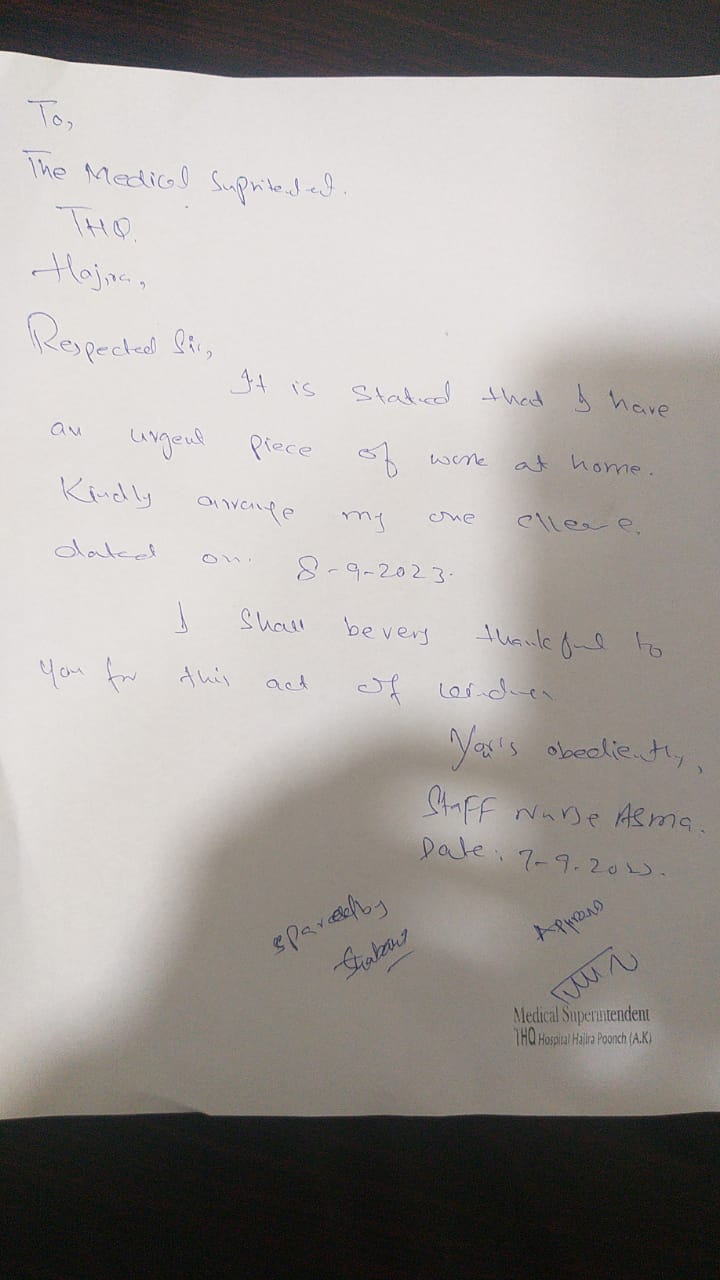 To,
The Medical Supritended.
THQ.
Hajira,
Respected Sir,
It is stated that I have
an urgent piece of work at home.
Kindly arrange my one
dated on. 8-9-2023.
I Shall be very thankful to
you for this act of
Your's obediently,
Staff Nurse Asma.
Date: 7-9-2023.
spared by
Medical Superintendent
THQ Hospital Hajira Poonch (A.K)